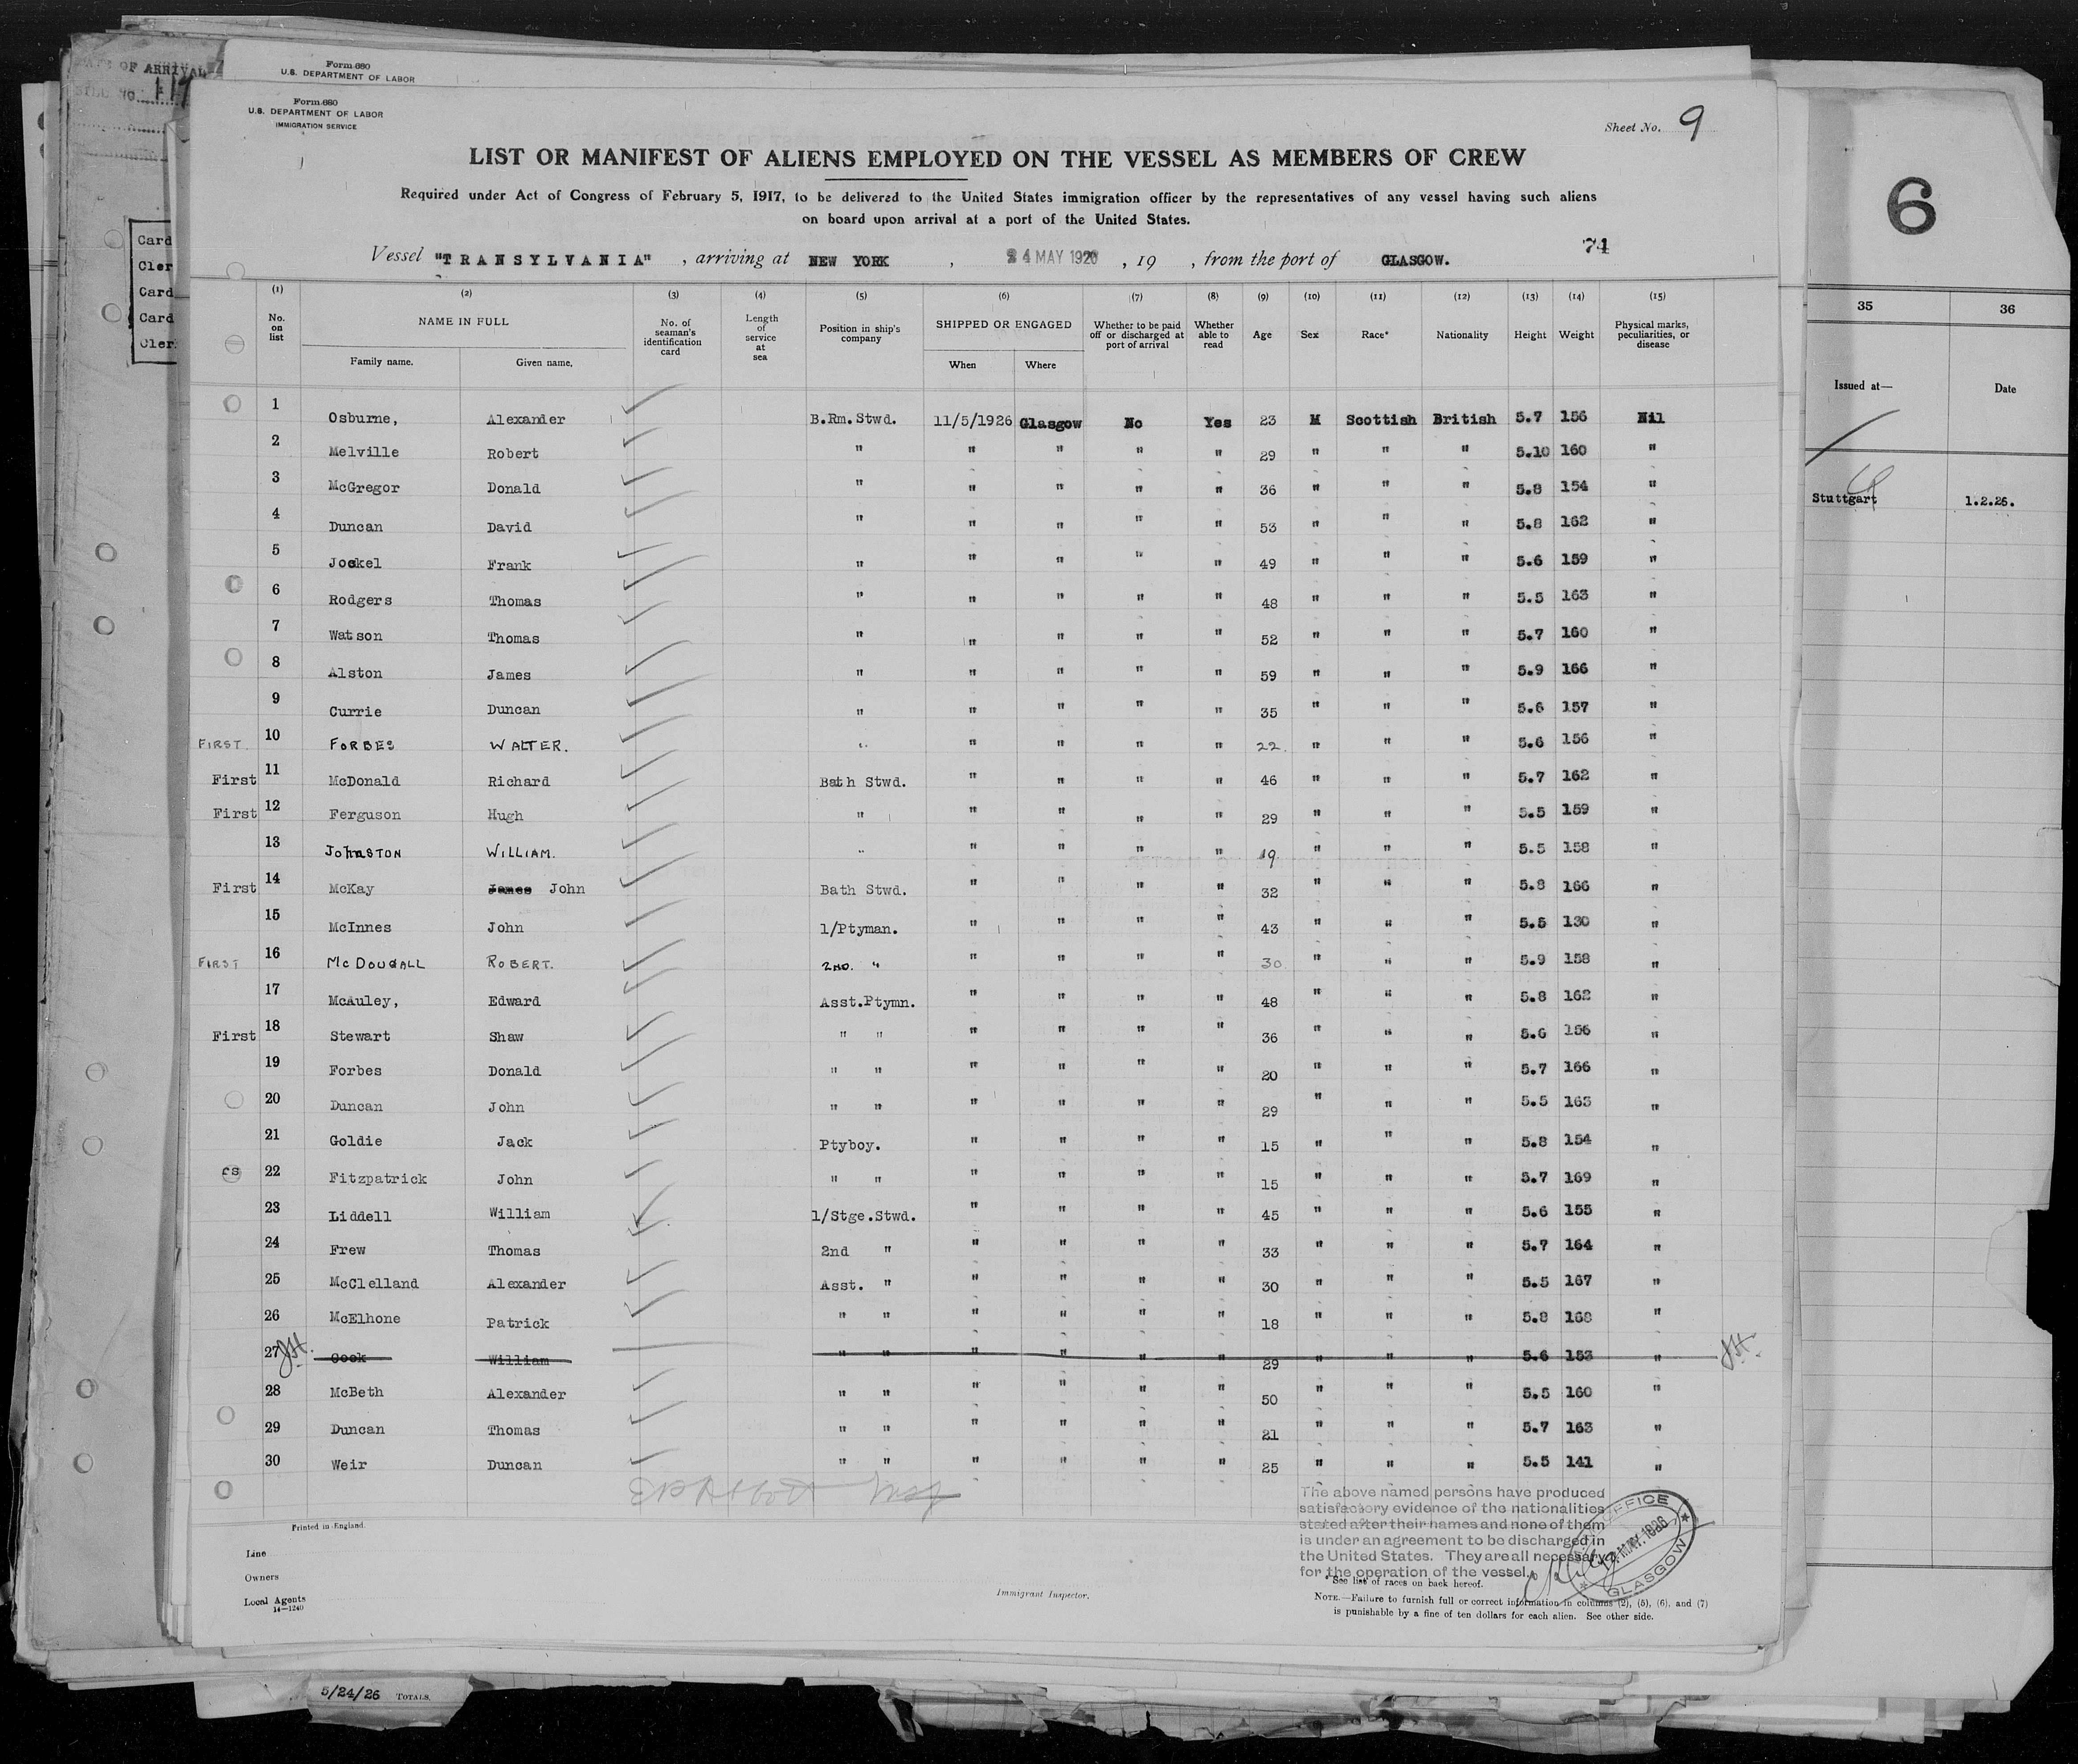 Form 680
U.S. DEPARTMENT OF LABOR
OF ARRIVAL
No.
Card
Cler
Card
Card
Cler
6
35 36
Issued at— Date
Stuttgart 1.2.26.
Form 680
U.S. DEPARTMENT OF LABOR
IMMIGRATION SERVICE
Sheet No. 9
LIST OR MANIFEST OF ALIENS EMPLOYED ON THE VESSEL AS MEMBERS OF CREW
Required under Act of Congress of February 5, 1917, to be delivered to the United States immigration officer by the representatives of any vessel having such aliens
on board upon arrival at a port of the United States.
74
Vessel "TRANSYLVANIA", arriving at NEW YORK, 24 MAY 1926, 19 , from the port of GLASGOW.
(1) (2) (3) (4) (5) (6) (7) (8) (9) (10) (11) (12) (13) (14) (15)
No. on list NAME IN FULL Family name. Given name. No. of seaman's identification card Length of service at sea Position in ship's company SHIPPED OR ENGAGED When Where Whether to be paid off or discharged at port of arrival Whether able to read Age Sex Race* Nationality Height Weight Physical marks, peculiarities, or disease
1 Osburne, Alexander B.Rm. Stwd. 11/5/1926 Glasgow No Yes 23 M Scottish British 5.7 156 Nil
2 Melville Robert " " " " " 29 " " " 5.10 160 "
3 McGregor Donald " " " " " 36 " " " 5.8 154 "
4 Duncan David " " " " " 53 " " " 5.8 162 "
5 Jockel Frank " " " " " 49 " " " 5.6 159 "
6 Rodgers Thomas " " " " " 48 " " " 5.5 163 "
7 Watson Thomas " " " " " 52 " " " 5.7 160 "
8 Alston James " " " " " 59 " " " 5.9 166 "
9 Currie Duncan " " " " " 35 " " " 5.6 157 "
FIRST 10 FORBES WALTER. " " " " " 22 " " " 5.6 156 "
First 11 McDonald Richard Bath Stwd. " " " " 46 " " " 5.7 162 "
First 12 Ferguson Hugh " " " " " 29 " " " 5.5 159 "
13 JohnSTON WILLIAM. " " " " " 19 " " " 5.5 158 "
First 14 McKay James John Bath Stwd. " " " " 32 " " " 5.8 166 "
15 McInnes John 1/Ptyman. " " " " 43 " " " 5.5 130 "
FIRST 16 McDOUGALL ROBERT. 2ND. " " " " " 30 " " " 5.9 158 "
17 McAuley, Edward Asst.Ptymn. " " " " 48 " " " 5.8 162 "
First 18 Stewart Shaw " " " " " " 36 " " " 5.6 156 "
19 Forbes Donald " " " " " " 20 " " " 5.7 166 "
20 Duncan John " " " " " " 29 " " " 5.5 163 "
21 Goldie Jack Ptyboy. " " " " 15 " " " 5.8 154 "
22 Fitzpatrick John " " " " " " 15 " " " 5.7 169 "
23 Liddell William 1/Stge.Stwd. " " " " 45 " " " 5.6 155 "
24 Frew Thomas 2nd " " " " " 33 " " " 5.7 164 "
25 McClelland Alexander Asst. " " " " " 30 " " " 5.5 167 "
26 McElhone Patrick " " " " " " 18 " " " 5.8 168 "
27 JH. Cook William " " " " " " 29 " " " 5.6 153 " JH.
28 McBeth Alexander " " " " " " 50 " " " 5.5 160 "
29 Duncan Thomas " " " " " " 21 " " " 5.7 163 "
30 Weir Duncan " " " " " " 25 " " " 5.5 141 "
The above named persons have produced
satisfactory evidence of the nationalities
stated after their names and none of them
is under an agreement to be discharged in
the United States. They are all necessary
for the operation of the vessel.
OFFICE
MAY.1926
GLASGOW
Printed in England.
Line
Owners
Local Agents
14—1240
Immigrant Inspector.
* See list of races on back hereof.
NOTE.—Failure to furnish full or correct information in columns (2), (5), (6), and (7)
is punishable by a fine of ten dollars for each alien. See other side.
5/24/26 TOTALS.